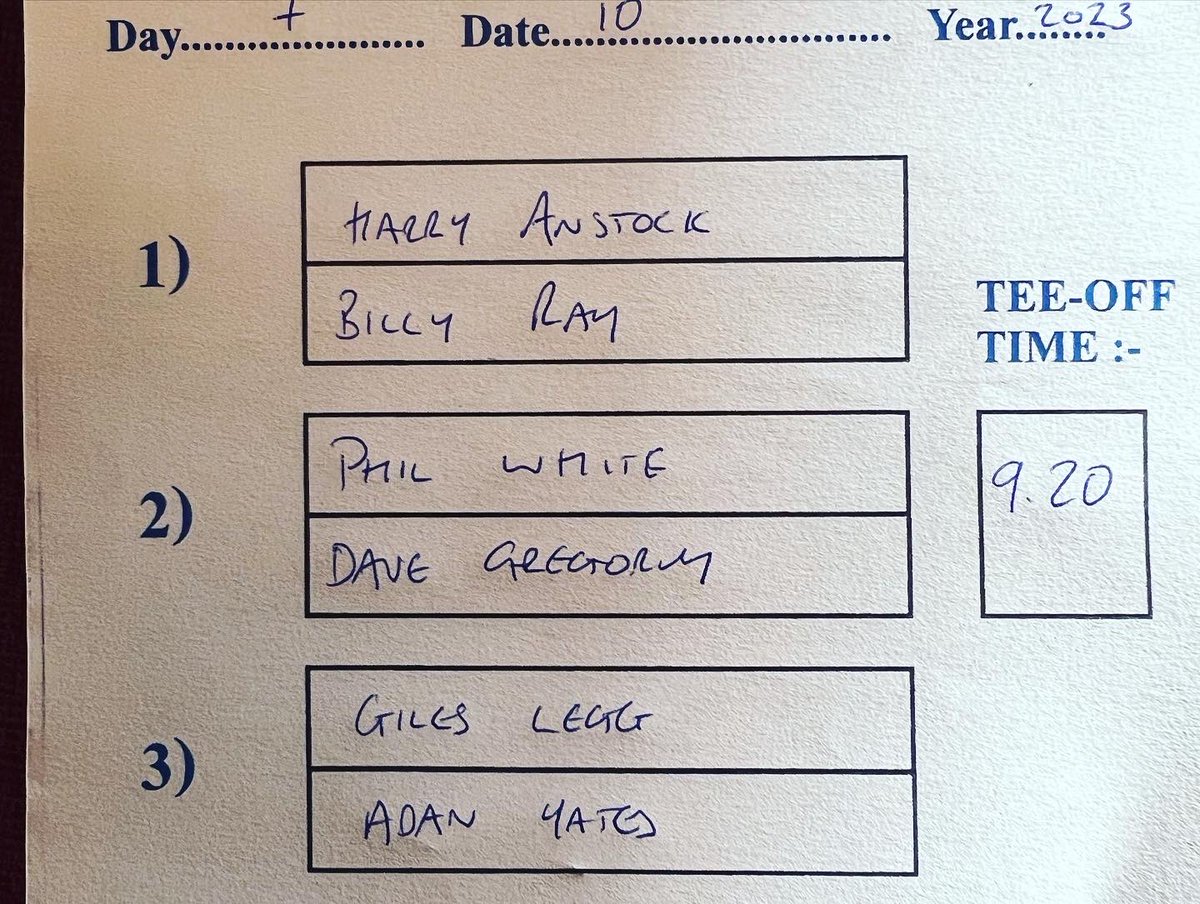 Day........................ Date.............................. Year.........
10 2023
1)
HARRY ANSTOCK
BILLY RAY
TEE-OFF
TIME :-
2)
PHIL WHITE
DAVE GREGORY
9.20
3)
GILES LEGG
ADAN YATES